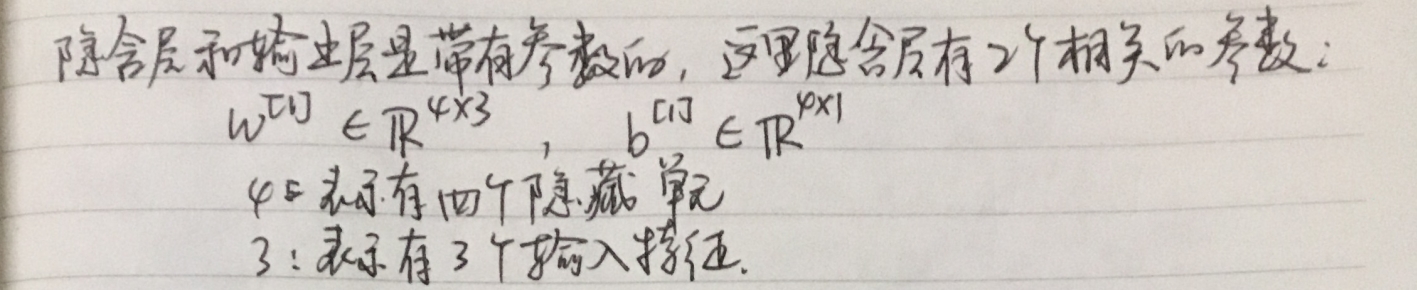 隐含层和输出层是带有参数的，这里隐含层有2个相关的参数：
W^[1] ∈ ℝ^4×3 , b^[1] ∈ ℝ^4×1
4：表示有四个隐藏单元
3：表示有3个输入特征.